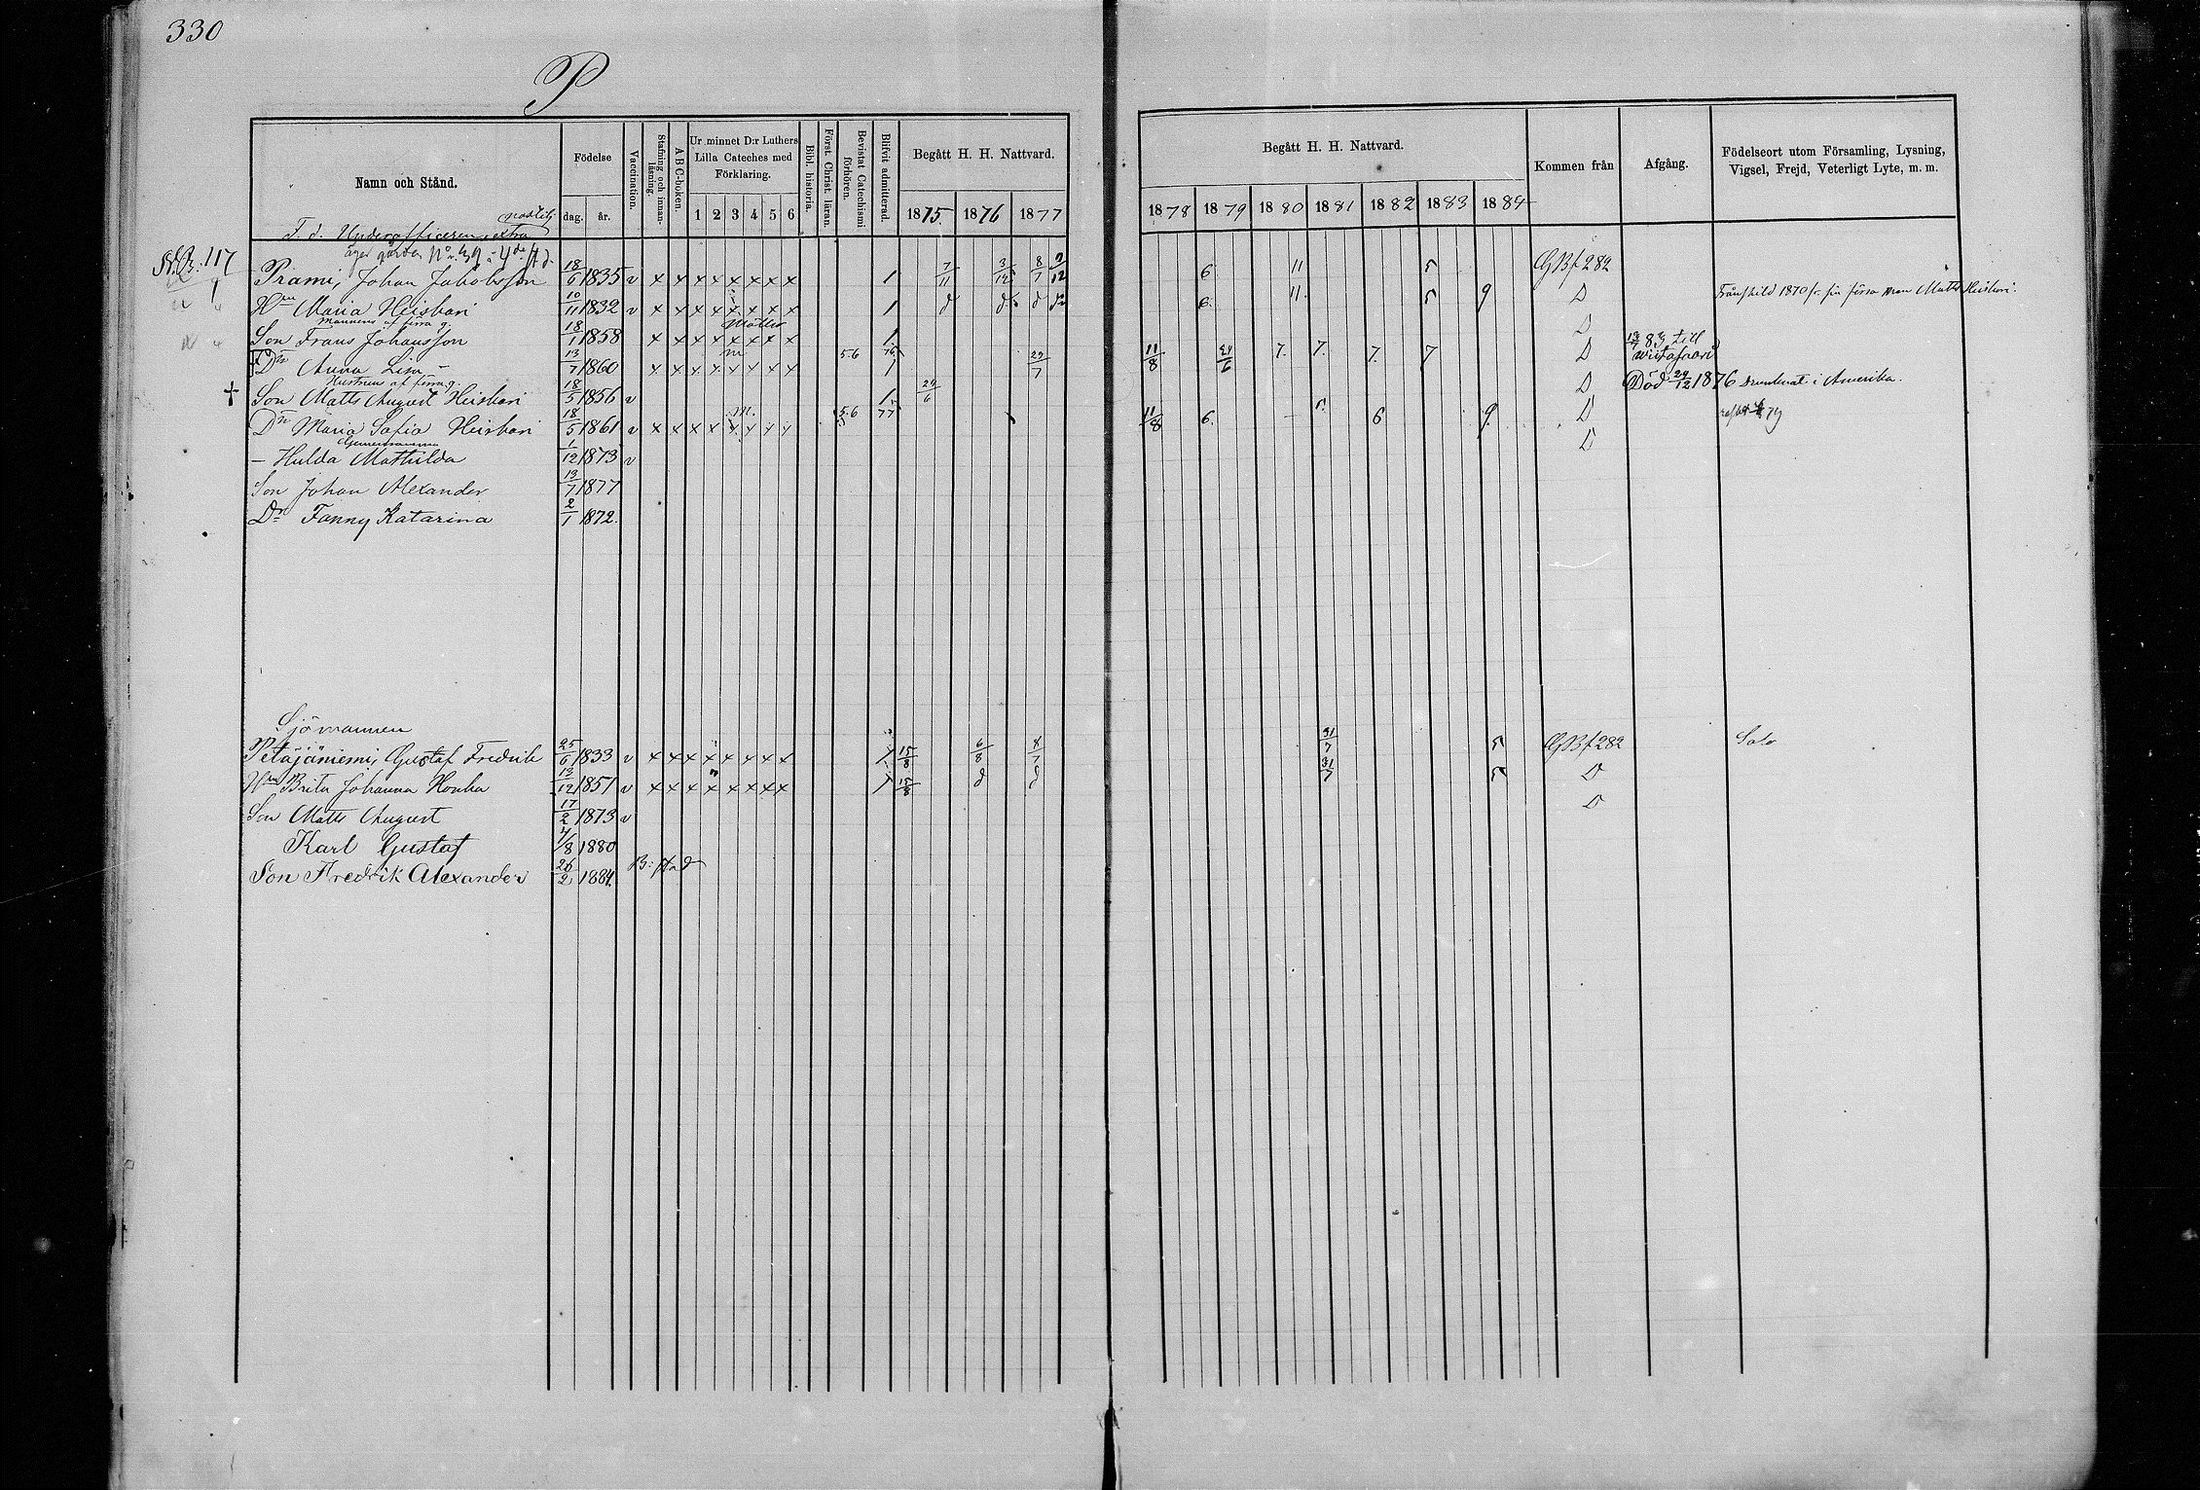 330
P
Namn och Stånd.
Födelse
dag. år.
Vaccination.
Stafning och innanläsning.
A B C-boken.
Ur minnet D:r Luthers Lilla Cateches med Förklaring.
1 2 3 4 5 6
Bibl. historia.
Först. Christ. läran.
Bevistat Catechismi förhören.
Blifvit admitterad.
Begått H. H. Nattvard.
1875. 1876 1877
Begått H. H. Nattvard.
1878 1879 1880 1881 1882 1883 1884
Kommen från
Afgång.
Födelseort utom Församling, Lysning, Vigsel, Frejd, Veterligt Lyte, m. m.
F. d. Underofficeren, extra
äger gården No 39
117 Prami, Johan Jakobsson 18/6 1835 v x x x x x x x x 1 7/11 3/12 8/7 6 11 5 GB f 282
Hun Maria Heisbari 10/11 1832 v x x x x x x x x 1 d d 6. 11. 5 9 D Frånskild 1870 fr. sin förra man Matts Heisbari.
Mannens af förra g.
Son Frans Johansson 18/1 1858 x x x x x x x x 1. D
Dn Anna Lisa 13/7 1860 x x x x x x x x 5.6 1 29/7 11/8 7. 7. 7. 7 D 83 till
Hustruns af förra g.
+ Son Matts August Heisbari 18/5 1856 v 1. 24/6 D Död 29/12 1876 Drunknat i Amerika.
Dn Maria Sofia Heisbari 18/5 1861 v x x x x x x x x 5.6 77 11/8 6. 6 9. D
Gemensamma
– Hulda Mathilda 1/12 1873 v D
Son Johan Alexander 13/7 1877
Dn Fanny Katarina 2/1 1872.
Sjömannen
Petäjäniemi, Gustaf Fredrik 25/6 1833 v x x x x x x x x 1 15/8 6/8 8/7 31/7 5 GB f 282 Salo
Hun Brita Johanna Honka 13/12 1851 v x x x x x x x x 1 15/8 d d 31/7 5 D
Son Matts August 17/2 1873 v D
Karl Gustaf 4/8 1880
Son Fredrik Alexander 26/2 1884. B: stad